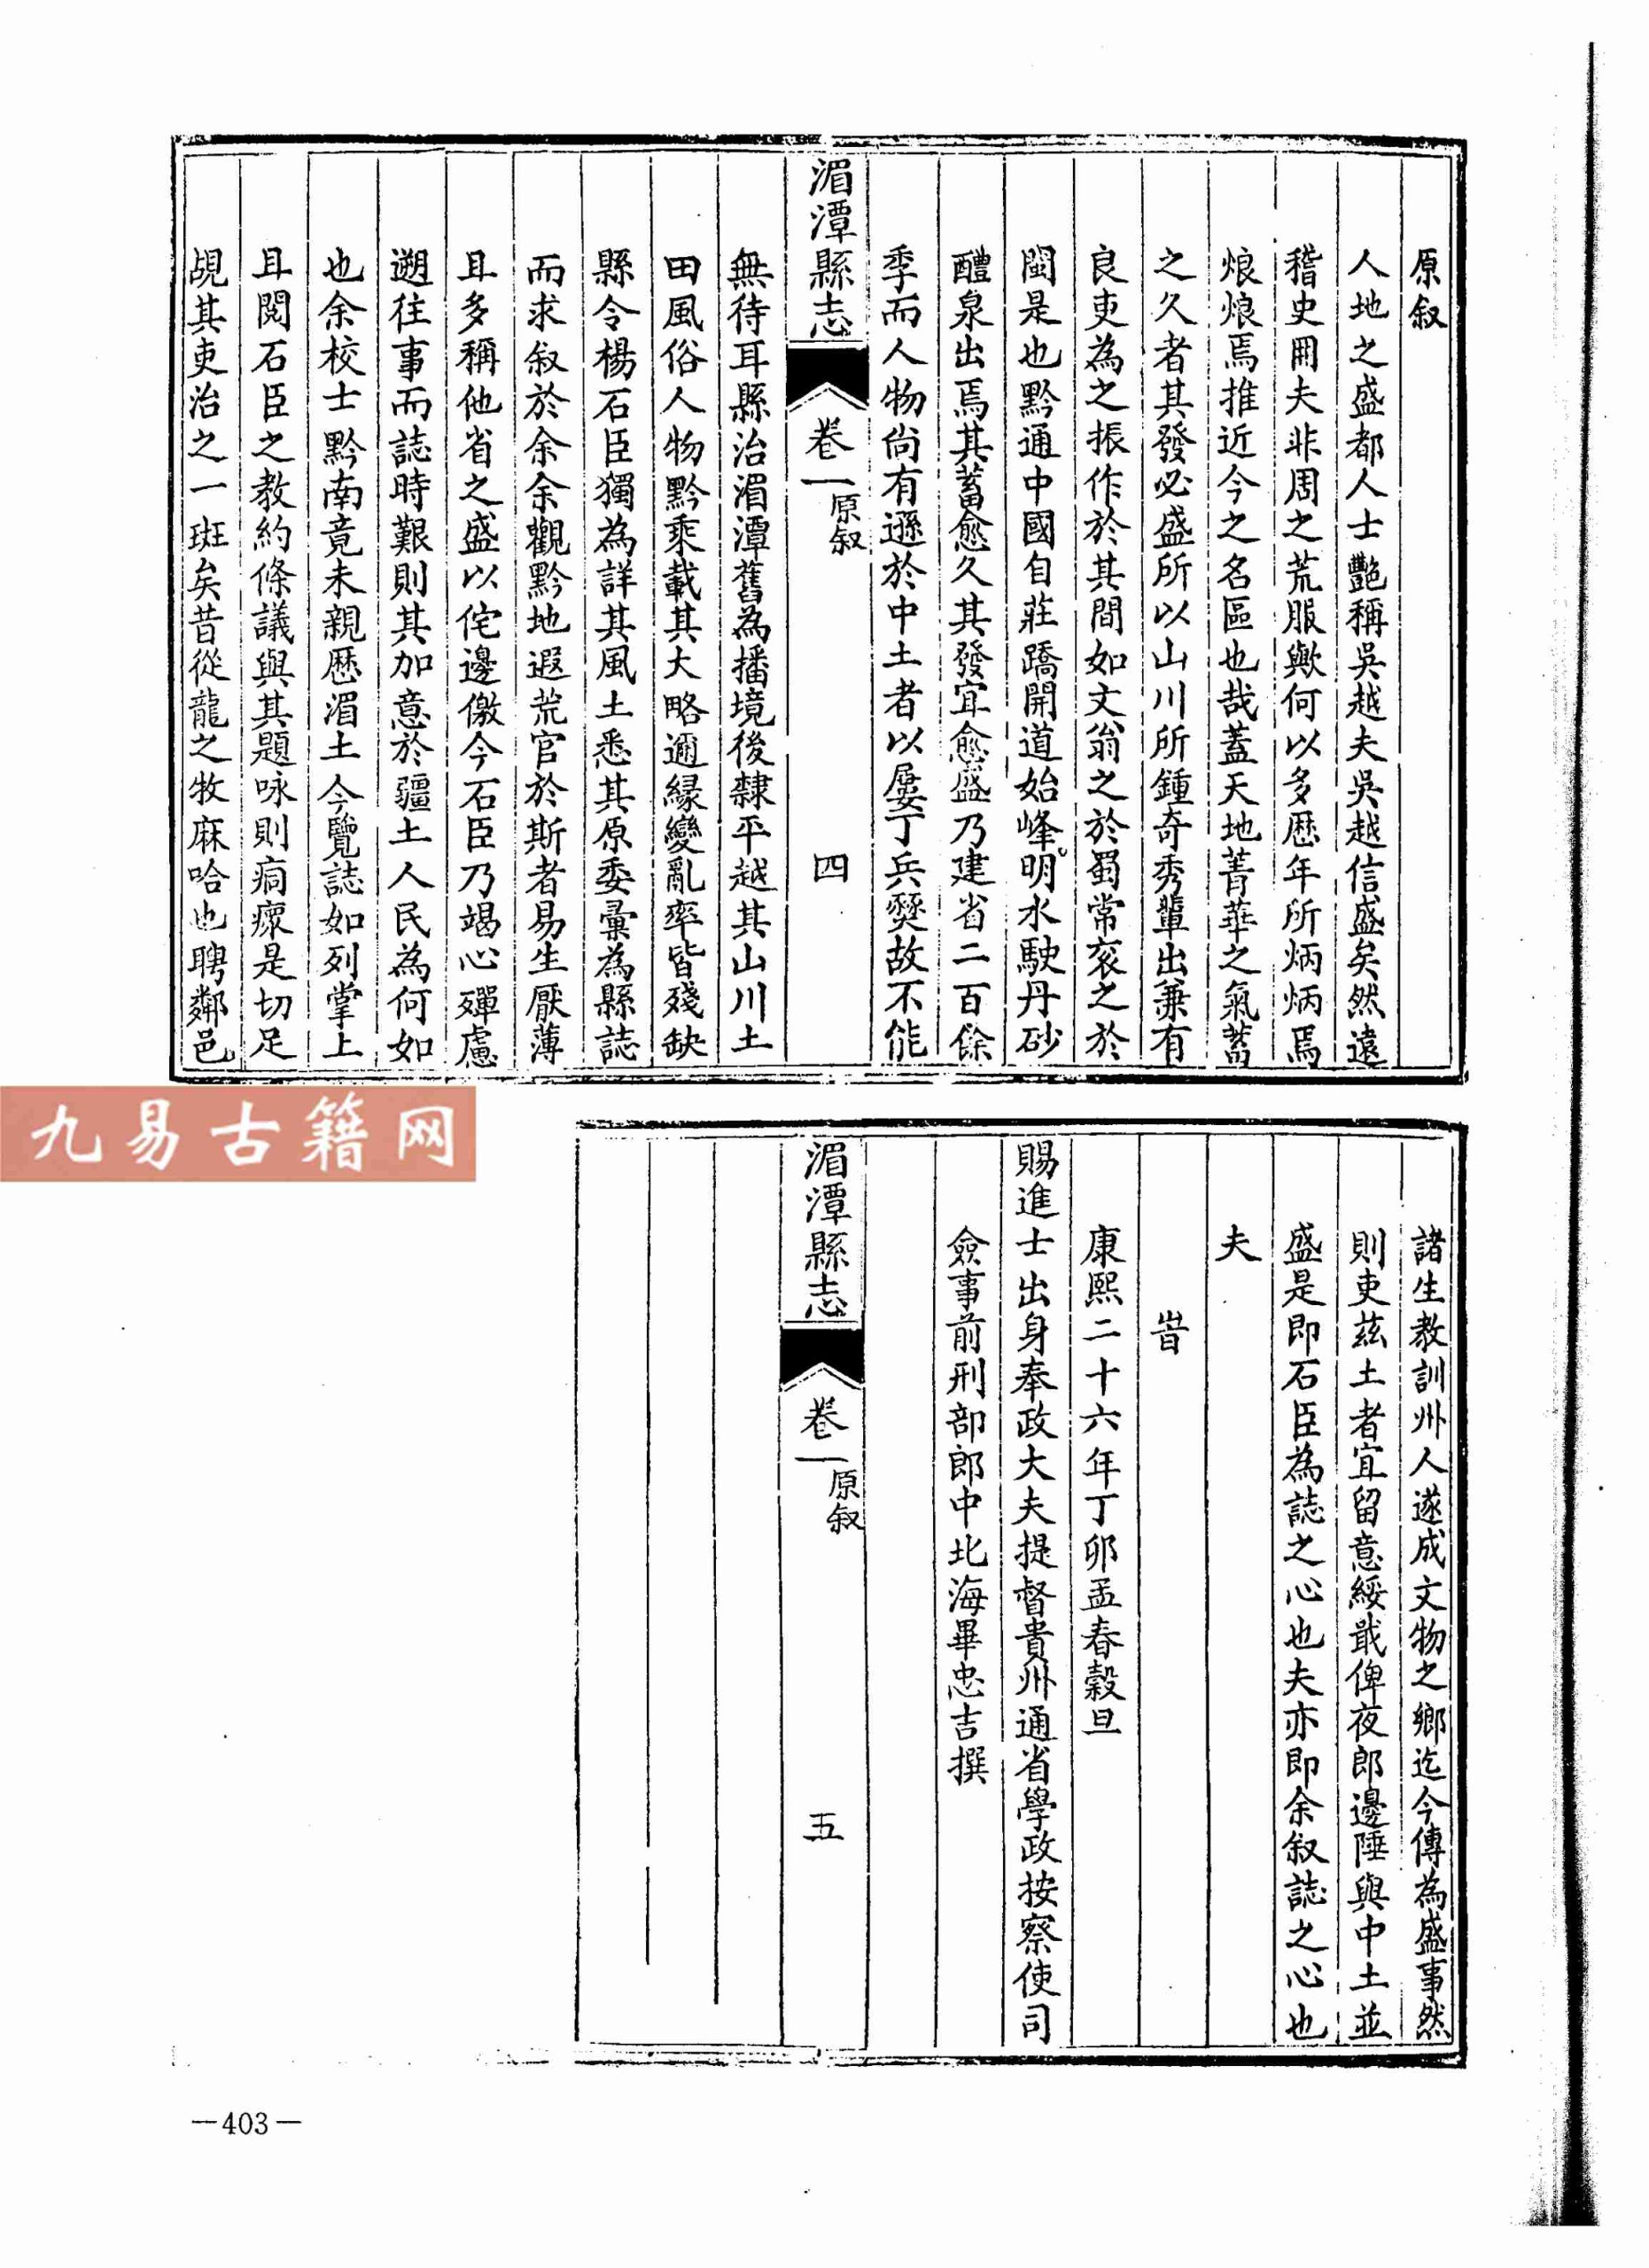 原叙
人地之盛都人士艷稱吳越夫吳越信盛矣然遠
稽史冊夫非周之荒服歟何以多歷年所炳炳焉
烺烺焉推近今之名區也哉蓋天地菁華之氣蓄
之久者其發必盛所以山川所鍾奇秀輩出兼有
良吏為之振作於其間如文翁之於蜀常衮之於
閩是也黔通中國自莊蹻開道始峰明水駛丹砂
醴泉出焉其蓄愈久其發宜愈盛乃建省二百餘
季而人物尚有遜於中土者以屢丁兵燹故不能
湄潭縣志 卷一 原叙 四
無待耳縣治湄潭舊為播境後隸平越其山川土
田風俗人物黔乘載其大略邇緣變亂率皆殘缺
縣令楊石臣獨為詳其風土悉其原委彙為縣誌
而求叙於余余觀黔地遐荒官於斯者易生厭薄
耳多稱他省之盛以侘邊徼今石臣乃竭心殫慮
遡往事而誌時艱則其加意於疆土人民為何如
也余校士黔南竟未親歷湄土今覽誌如列掌上
耳閱石臣之教約條議與其題咏則痌瘝是切足
覘其吏治之一斑矣昔從龍之牧麻哈也聘鄰邑
諸生教訓州人遂成文物之鄉迄今傳為盛事然
則吏茲土者宜留意綏戢俾夜郎邊陲與中土並
盛是即石臣為誌之心也夫亦即余叙誌之心也
夫
旹
康熙二十六年丁卯孟春穀旦
賜進士出身奉政大夫提督貴州通省學政按察使司
僉事前刑部郎中北海畢忠吉撰
湄潭縣志 卷一 原叙 五
九易古籍网
—403—